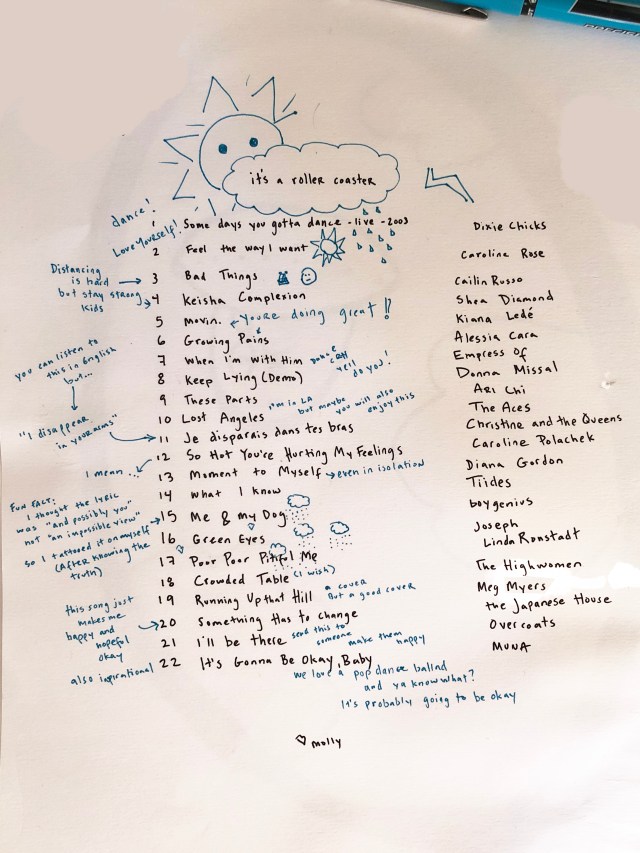 it's a roller coaster
dance!
1 Some days you gotta dance - live - 2003 Dixie Chicks
Love Yourself!
2 Feel the way I want Caroline Rose
Distancing
is hard
but stay strong
kids
3 Bad Things Cailin Russo
4 Keisha Complexion Shea Diamond
5 Movin. ← You're doing great!! Kiana Ledé
6 Growing Pains Alessia Cara
7 When I'm With Him Empress Of
yell do you!
8 Keep Lying (Demo) Donna Missal
9 These Parts Ari Chi
you can listen to
this in English
but...
"I disappear
in your arms"
10 Lost Angeles The Aces
I'm in LA
but maybe
you will also
enjoy this
11 Je disparais dans tes bras Christine and the Queens
I mean...
12 So Hot You're Hurting My Feelings Caroline Polachek
13 Moment to Myself → even in isolation Diana Gordon
14 What I Know Tiides
FUN FACT:
I thought the lyric
was "and possibly you"
not "an impossible view"
so I tattooed it on myself
(After knowing the
truth)
15 Me & my Dog boygenius
16 Green Eyes Joseph
17 Poor Poor Pitiful Me Linda Ronstadt
18 Crowded Table (I wish) The Highwomen
19 Running Up that Hill Meg Myers
a cover
But a good cover
this song just
makes me
happy and
hopeful
okay
20 Something Has to Change the Japanese House
21 I'll be there Overcoats
send this to
someone
make them
happy
also inspirational
22 It's Gonna Be Okay, Baby MUNA
we love a pop dance ballad
and ya know what?
It's probably going to be okay
molly